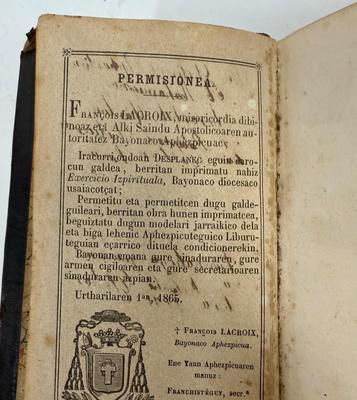 PERMISIONEA.
FRANÇOIS LACROIX, misericordia dibi-
noaz eta Alki Saindu Apostolicoaren au-
toritatez Bayonaco Aphezpicuac,
Iracurri ondoan DESPLANEC eguin daro-
cun galdea, berritan imprimatu nahiz
Exercicio Izpirituala, Bayonaco diocesaco
usaiacotçat;
Permetitu eta permetitcen dugu galde-
guileari, berritan obra hunen imprimatcea,
beguiztatu dugun modelari jarraikico dela
eta biga lehenic Aphezpicuteguico Liburu-
teguian eçarrico dituela condicionerekin.
Bayonan emana gure sinaduraren, gure
armen cigiloaren eta gure secretarioaren
sinaduraren azpian.
Urtharilaren 1an, 1865.
† FRANÇOIS LACROIX,
Bayonaco Aphezpicua.
Ene Yaun Aphezpicuaren
manuz :
FRANCHISTÉGUY, secr.ª